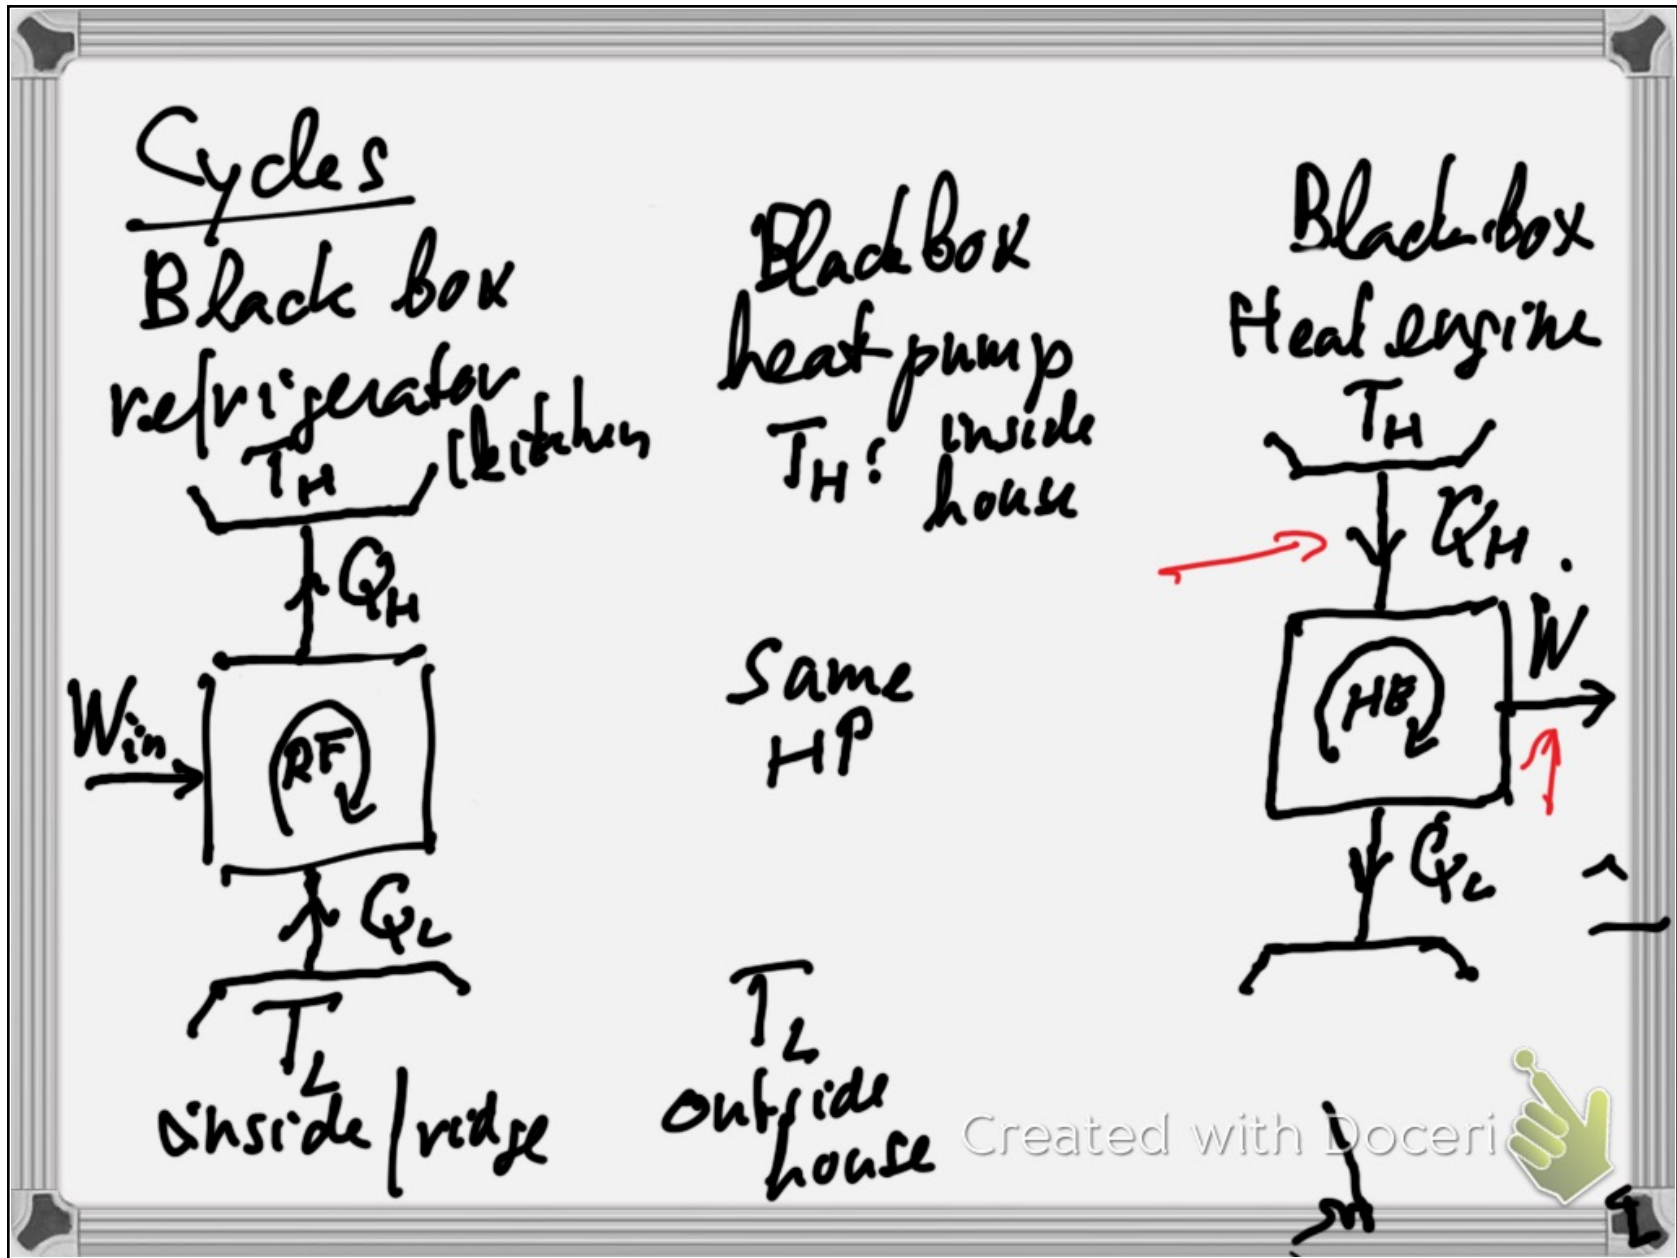 Cycles
Black box
refrigerator
TH (kitchen
QH
Win
RF
QL
TL
inside fridge
Black box
heat pump
TH: inside
house
Same
HP
TL
outside
house
Black box
Heat engine
TH
QH
W
HE
QL
Created with Doceri